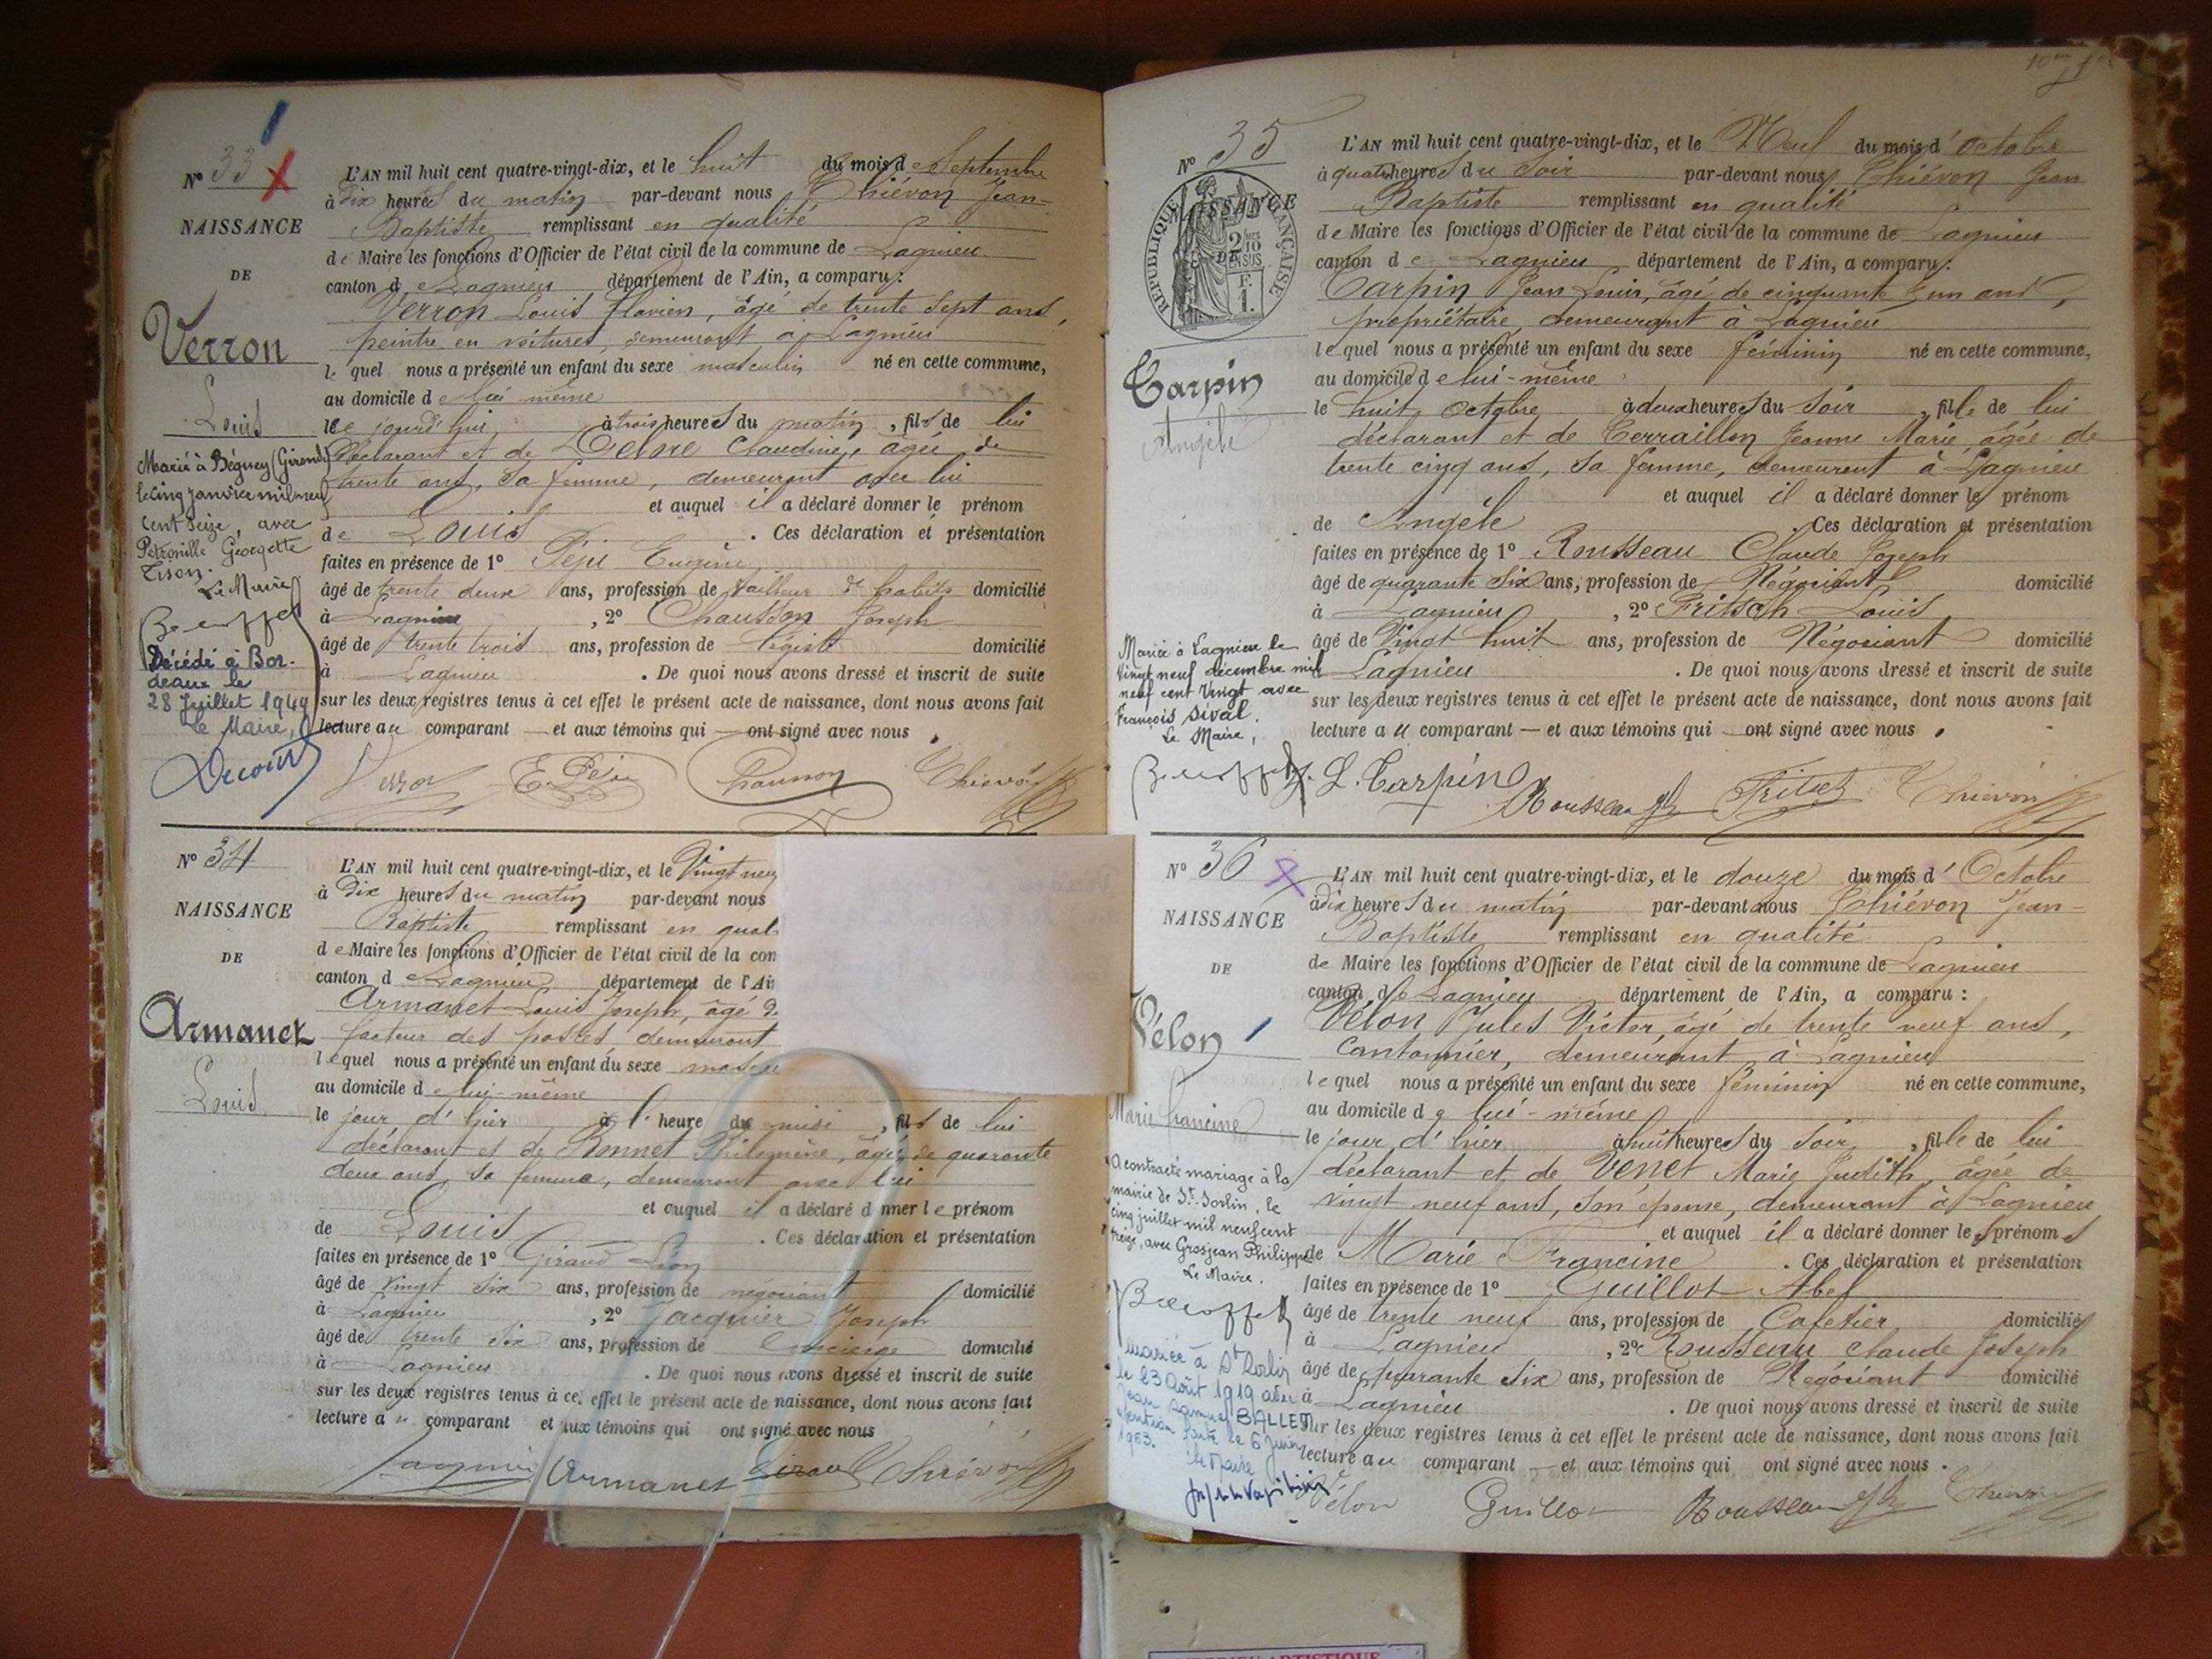 Nº 33
NAISSANCE
DE
Verron
Louis
Marié à Béguey (Gironde)
le cinq janvier mil neuf
cent seize, avec
Pétronille Géorgette
Tison.
Le Maire
Décédé à Bor-
deaux le
28 Juillet 1949
Le Maire,
L'AN mil huit cent quatre-vingt-dix, et le huit du mois de Septembre
à dix heures du matin par-devant nous Thiévon Jean-
Baptiste remplissant en qualité
de Maire les fonctions d'Officier de l'état civil de la commune de Lagnieu
canton de Lagnieu département de l'Ain, a comparu :
Verron Louis flavien, âgé de trente sept ans,
peintre en voitures, demeurant à Lagnieu
le quel nous a présenté un enfant du sexe masculin né en cette commune,
au domicile de lui même
le jourd'hui à trois heures du matin, fils de lui
déclarant et de Claudine, âgée de
trente ans, sa femme, demeurant avec lui
et auquel il a déclaré donner le prénom
de Louis. Ces déclaration et présentation
faites en présence de 1º Péju Eugène
âgé de trente deux ans, profession de tailleur d'habits domicilié
à Lagnieu, 2º Chausson Joseph
âgé de trente trois ans, profession de domicilié
à Lagnieu. De quoi nous avons dressé et inscrit de suite
sur les deux registres tenus à cet effet le présent acte de naissance, dont nous avons fait
lecture au comparant — et aux témoins qui — ont signé avec nous.
Verron E. Péju Chausson Thiévon
Nº 34
NAISSANCE
DE
Armanet
Louis
L'AN mil huit cent quatre-vingt-dix, et le Vingt neu
à dix heures du matin par-devant nous
Baptiste remplissant en qual
de Maire les fonctions d'Officier de l'état civil de la com
canton de Lagnieu département de l'Ai
Armanet Louis Joseph, âgé d
facteur des postes demeurant
lequel nous a présenté un enfant du sexe mascu
au domicile de lui-même
le jour d'hier à l'heure de midi, fils de lui
déclarant et de Bonnet Philomène, âgée de quarante
deux ans, sa femme, demeurant avec lui
et auquel il a déclaré donner le prénom
de Louis. Ces déclaration et présentation
faites en présence de 1º Giraud Léon
âgé de vingt six ans, profession de négociant domicilié
à Lagnieu, 2º Jacquier Joseph
âgé de trente six ans, profession de Concierge domicilié
à Lagnieu. De quoi nous avons dressé et inscrit de suite
sur les deux registres tenus à cet effet le présent acte de naissance, dont nous avons fait
lecture au comparant et aux témoins qui ont signé avec nous
Jacquier Armanet Giraud Thiévon
Nº 35
NAISSANCE
DE
RÉPUBLIQUE FRANÇAISE
2 10 EN SUS
F. 1.
Tarpin
Angèle
Mariée à Lagnieu le
Vingt neuf décembre mil
neuf cent vingt avec
François Sival.
Le Maire,
L'AN mil huit cent quatre-vingt-dix, et le Neuf du mois d'Octobre
à quatre heures du soir par-devant nous Thiévon Jean
Baptiste remplissant en qualité
de Maire les fonctions d'Officier de l'état civil de la commune de Lagnieu
canton de Lagnieu département de l'Ain, a comparu :
Tarpin Jean Louis, âgé de cinquante un ans,
propriétaire, demeurant à Lagnieu
lequel nous a présenté un enfant du sexe féminin né en cette commune,
au domicile de lui-même
le huit octobre à deux heures du soir, fille de lui
déclarant et de Terraillon Jeanne Marie, âgée de
trente cinq ans, sa femme, demeurent à Lagnieu
et auquel il a déclaré donner le prénom
de Angèle. Ces déclaration et présentation
faites en présence de 1º Rousseau Claude Joseph
âgé de quarante six ans, profession de Négociant domicilié
à Lagnieu, 2º Fritsch Louis
âgé de Vingt huit ans, profession de Négociant domicilié
Lagnieu. De quoi nous avons dressé et inscrit de suite
sur les deux registres tenus à cet effet le présent acte de naissance, dont nous avons fait
lecture au comparant — et aux témoins qui — ont signé avec nous.
J. L. Tarpin Rousseau Fritsch Thiévon
Nº 36
NAISSANCE
DE
Vélon
Marie francine
A contracté mariage à la
mairie de St. Sorlin, le
cinq juillet mil neuf cent
treize, avec Grosjean Philippe
Le Maire.
Mariée à St Sorlin
le 23 Août 1919 avec
Jean Samuel BALLET
Mention faite le 6 Juin
1963.
le Maire
L'AN mil huit cent quatre-vingt-dix, et le douze du mois d'Octobre
à dix heures du matin par-devant nous Thiévon Jean-
Baptiste remplissant en qualité
de Maire les fonctions d'Officier de l'état civil de la commune de Lagnieu
canton de Lagnieu département de l'Ain, a comparu :
Vélon Jules Victor, âgé de trente neuf ans,
Cantonnier, demeurant à Lagnieu
lequel nous a présenté un enfant du sexe féminin né en cette commune,
au domicile de lui-même
le jour d'hier à huit heures du soir, fille de lui
déclarant et de Venet Marie Judith, âgée de
vingt neuf ans, son épouse, demeurant à Lagnieu
et auquel il a déclaré donner les prénoms
de Marie Francine. Ces déclaration et présentation
faites en présence de 1º Guillot Abel
âgé de trente neuf ans, profession de Cafetier domicilié
à Lagnieu, 2º Rousseau Claude Joseph
âgé de quarante six ans, profession de Négociant domicilié
à Lagnieu. De quoi nous avons dressé et inscrit de suite
sur les deux registres tenus à cet effet le présent acte de naissance, dont nous avons fait
lecture au comparant — et aux témoins qui ont signé avec nous.
Vélon Guillot Rousseau Thiévon